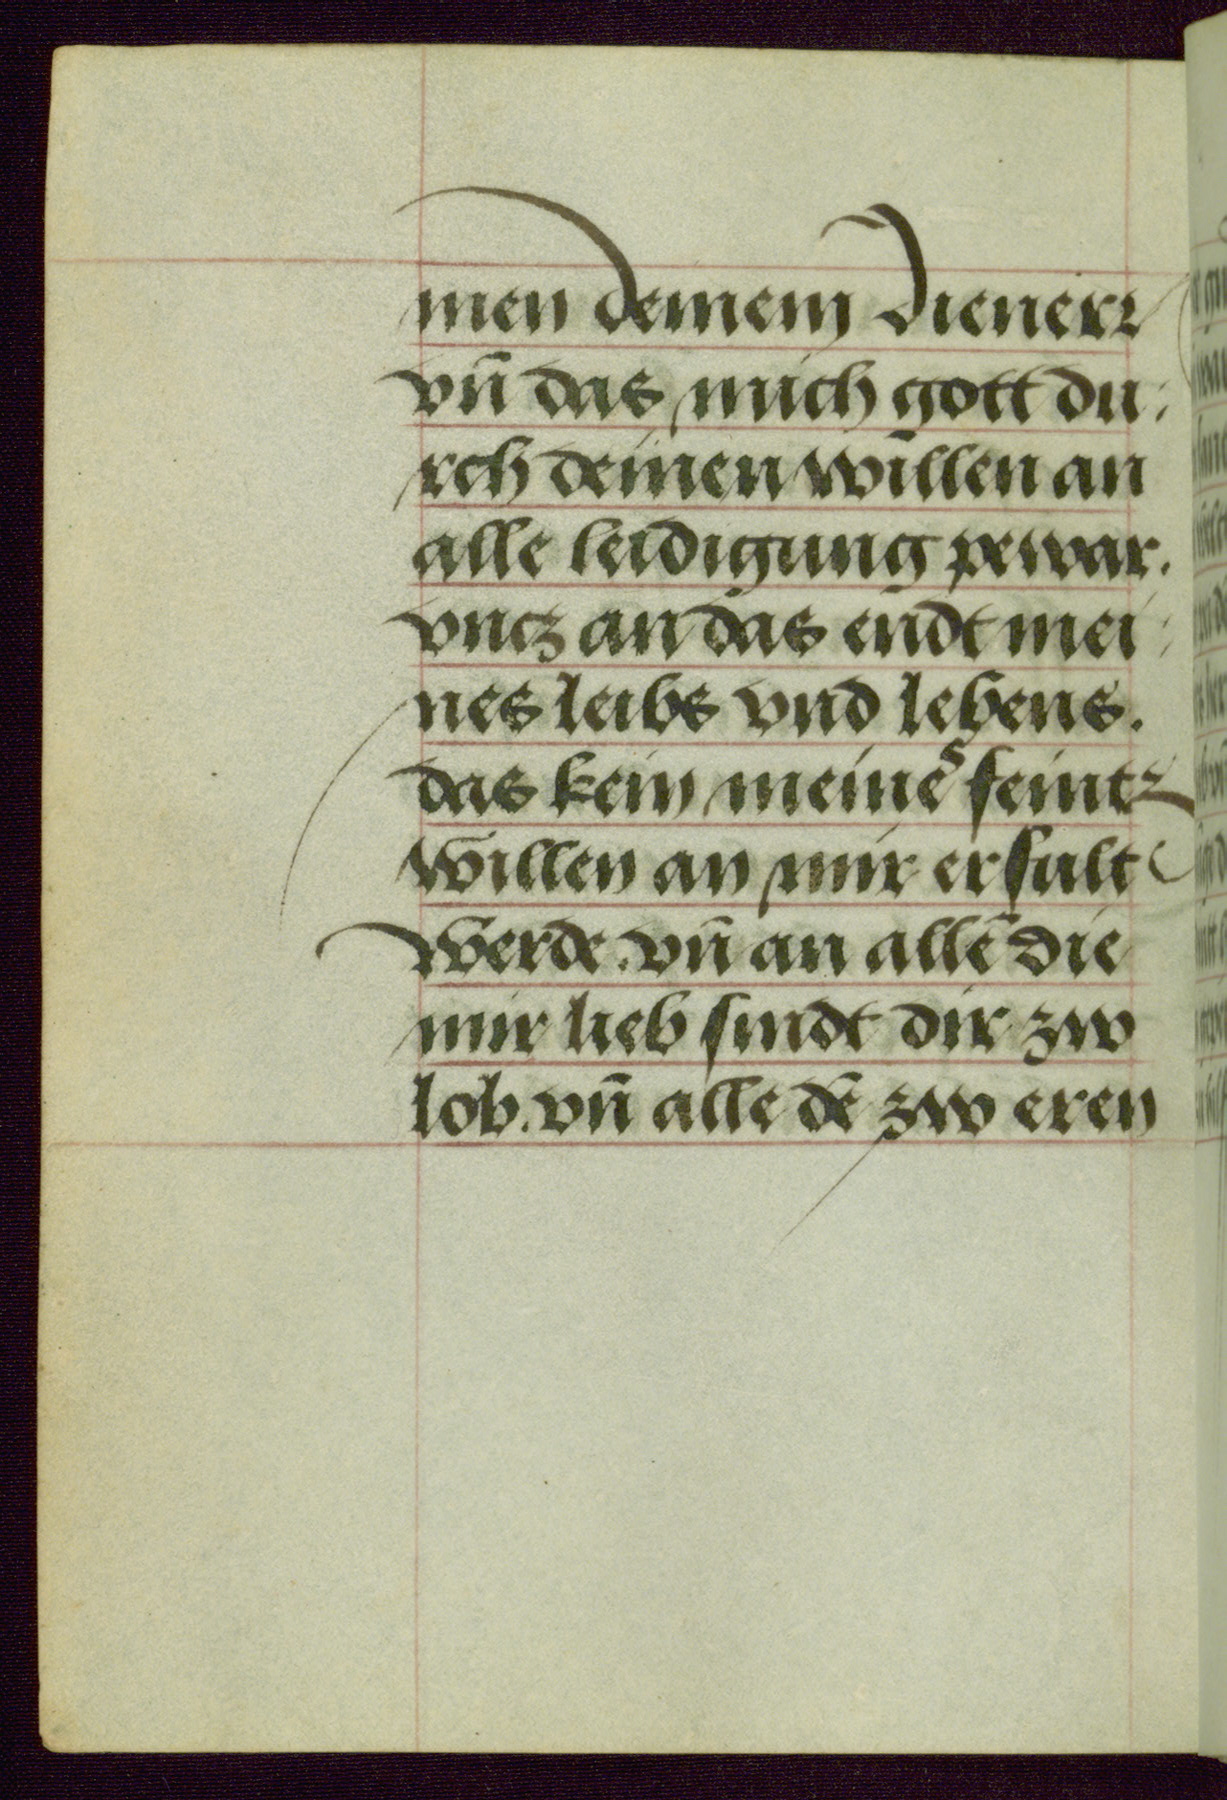 men deinem dienerr
vn̄ das mich gott du:
rch deinen willen an
alle leidigung pewar.
vntz an das endt mei:
nes leibs vnd lebens.
das kein meineˢ feint
willen an mir erfult
werde. vn̄ an allē die
mir lieb sindt dir zw
lob. vn̄ alle dē zw eren